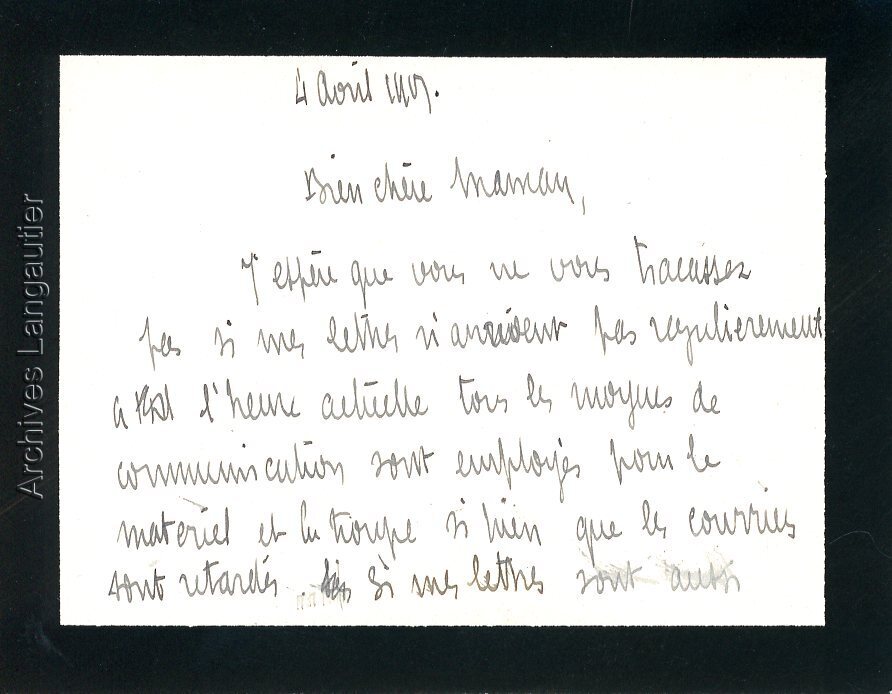 4 Avril
Bien chère Maman,
J'espère que vous ne vous tracassez
pas si mes lettres n'arrivent pas regulierement
a l'heure actuelle tous les moyens de
communication sont employés pour le
materiel et la troupe si bien que les courriers
sont retardés. Si mes lettres sont aussi
Archives Langautier